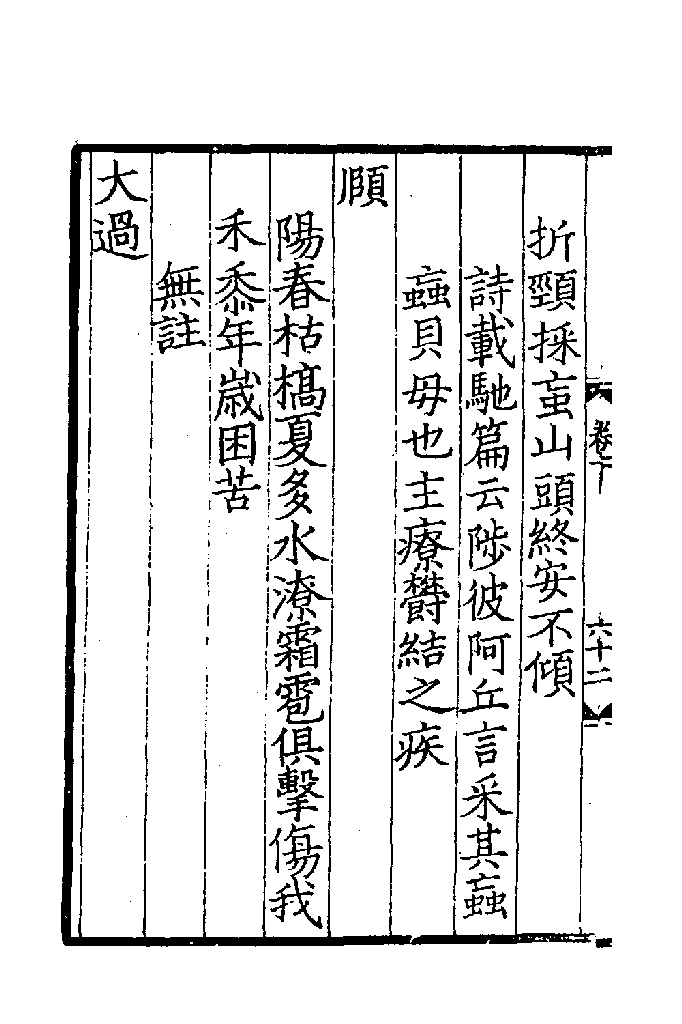 折頸採䖟山頭終安不傾
詩載馳篇云陟彼阿丘言采其蝱
蝱貝毋也主療欝結之疾
頤
陽春枯槁夏多水潦霜雹俱擊傷我
禾黍年歳困苦
無註
大過
卷下
六十二